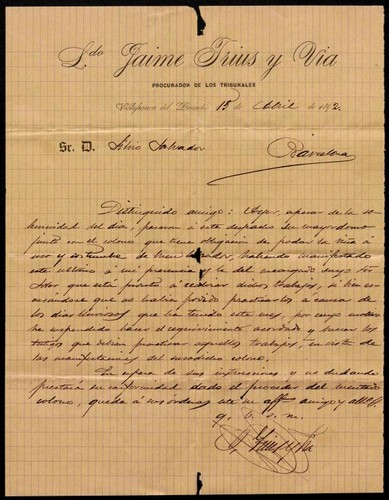 Ldo Jaime Trius y Via
PROCURADOR DE LOS TRIBUNALES
Villafranca del Panadés 15 de Abril de 1892.
Sr. D. Silvio Salvador
Barcelona
Distinguido amigo: Ayer, apesar de la so
lemnidad del dia, pasaron á este despacho su mayordomo
junto con el colono que tiene obligacion de podar la viña á
uso y costumbre de buen labrador, habiendo manifestado
este ultimo á mi presencia y la del
que está pronto á dichos trabajos, si bien
que no habia podido practicarlos á causa de
los dias lluviosos que ha tenido este mes, por cuyo motivo
he suspendido hacer el requirimiento acordado y buscar los
que debian practicar aquellos trabajos, en vista de
las manifestaciones del colono.
En espera de sus instrucciones y no dudando
prestará su conformidad dado el proceder del mentado
colono, queda á sus órdenes este su affmo amigo y
q. b. s. m.
J. Trius y Via